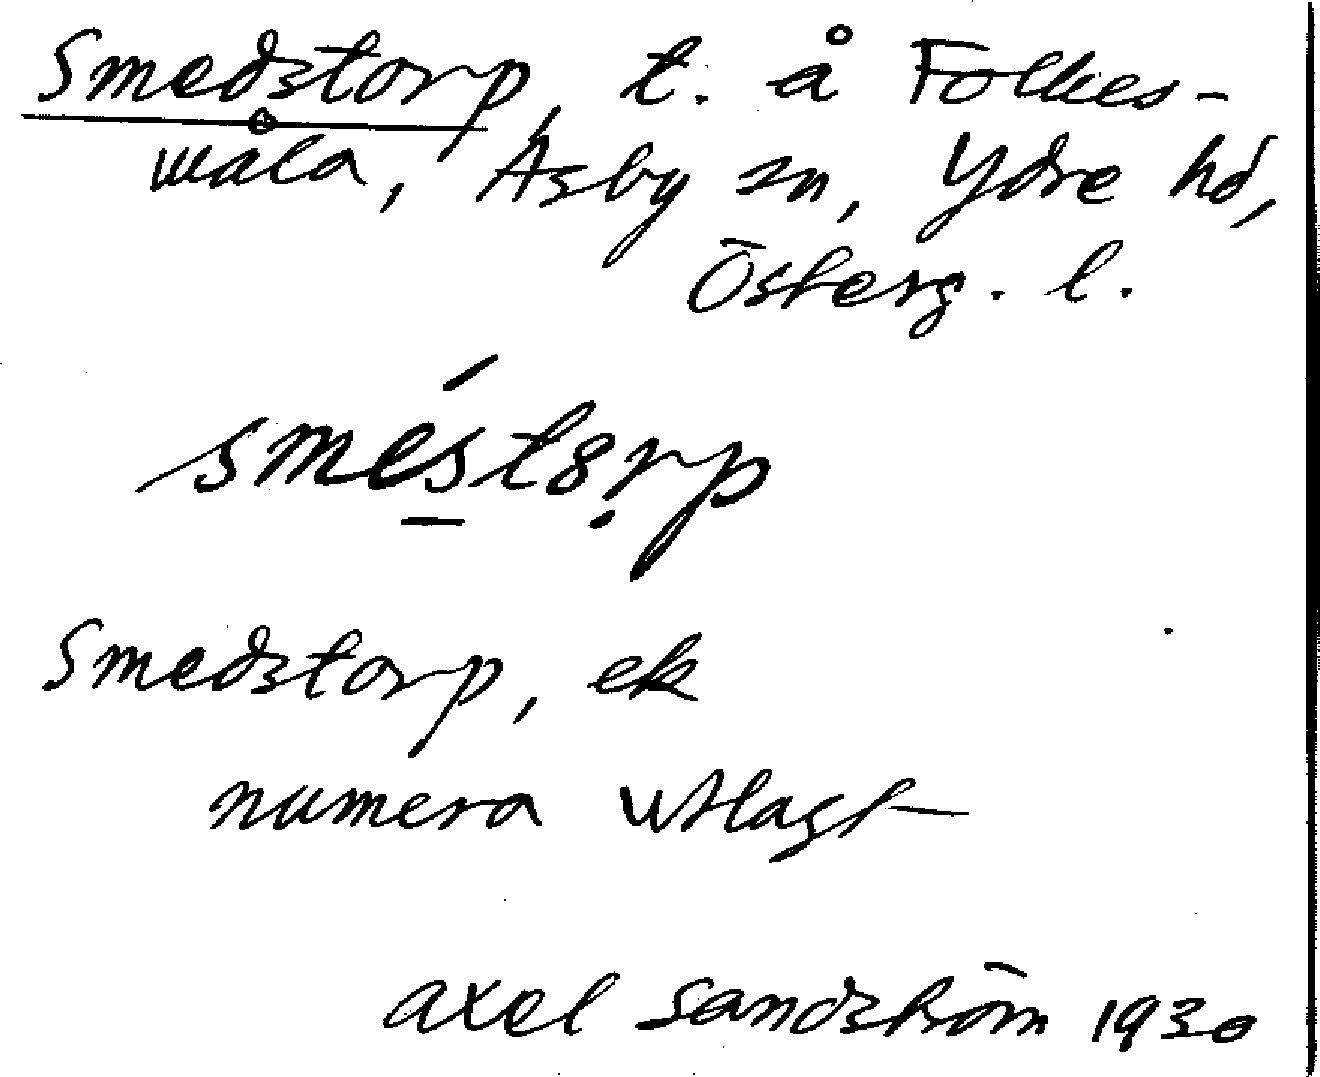 Smedstorp, t. å Folkes-
wala, Asby sn, Ydre hd,
Österg. l.
sméstorp
Smedstorp, ek
numera utlagt
axel Sandström 1930